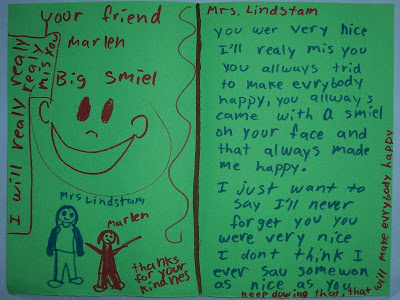 your friend
Marlen
I will realy realy
realy
mis you
Big Smiel
Mrs Lindstam
Marlen
thanks
for your
kindnes
Mrs. Lindstam
you wer very nice
I'll realy mis you
you allways trid
to make evrybody
happy, you allways
came with a smiel
on your face and
that always made
me happy.
I just want to
say I'll never
forget you you
were very nice
I dont think I
ever sau somewon
as nice as you
keep dowing that, that
will make evrybody happy